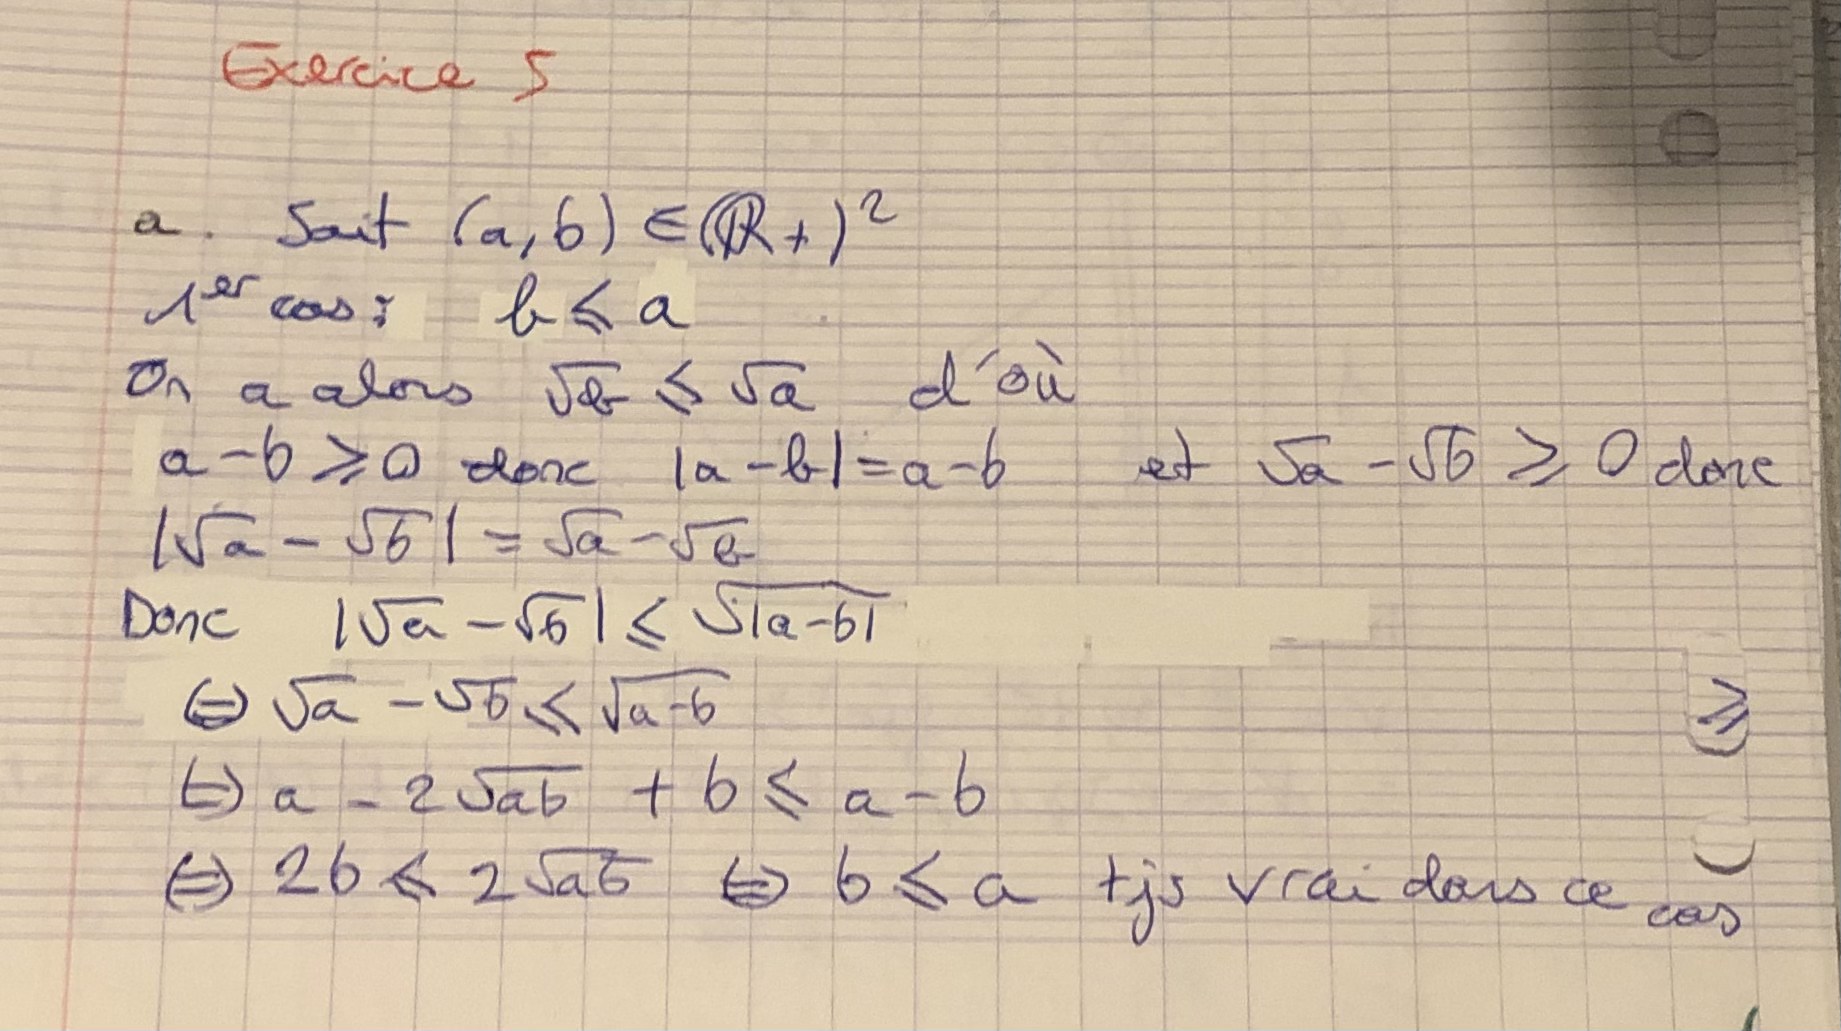 Exercice 5
a. Soit (a,b) ∈ (ℝ+)²
1er cas : b ⩽ a
On a alors √b ⩽ √a d'où
a-b ⩾ 0 donc |a-b| = a-b et √a - √b ⩾ 0 donc
|√a - √b| = √a - √b
Donc |√a - √b| ⩽ √|a-b|
⇔ √a - √b ⩽ √(a-b)
⇔ a - 2√ab + b ⩽ a - b
⇔ 2b ⩽ 2√ab ⇔ b ⩽ a tjs vrai dans ce cas